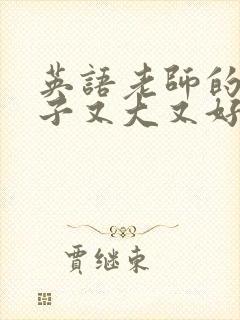 英語老師的
子又大又好
賈继東